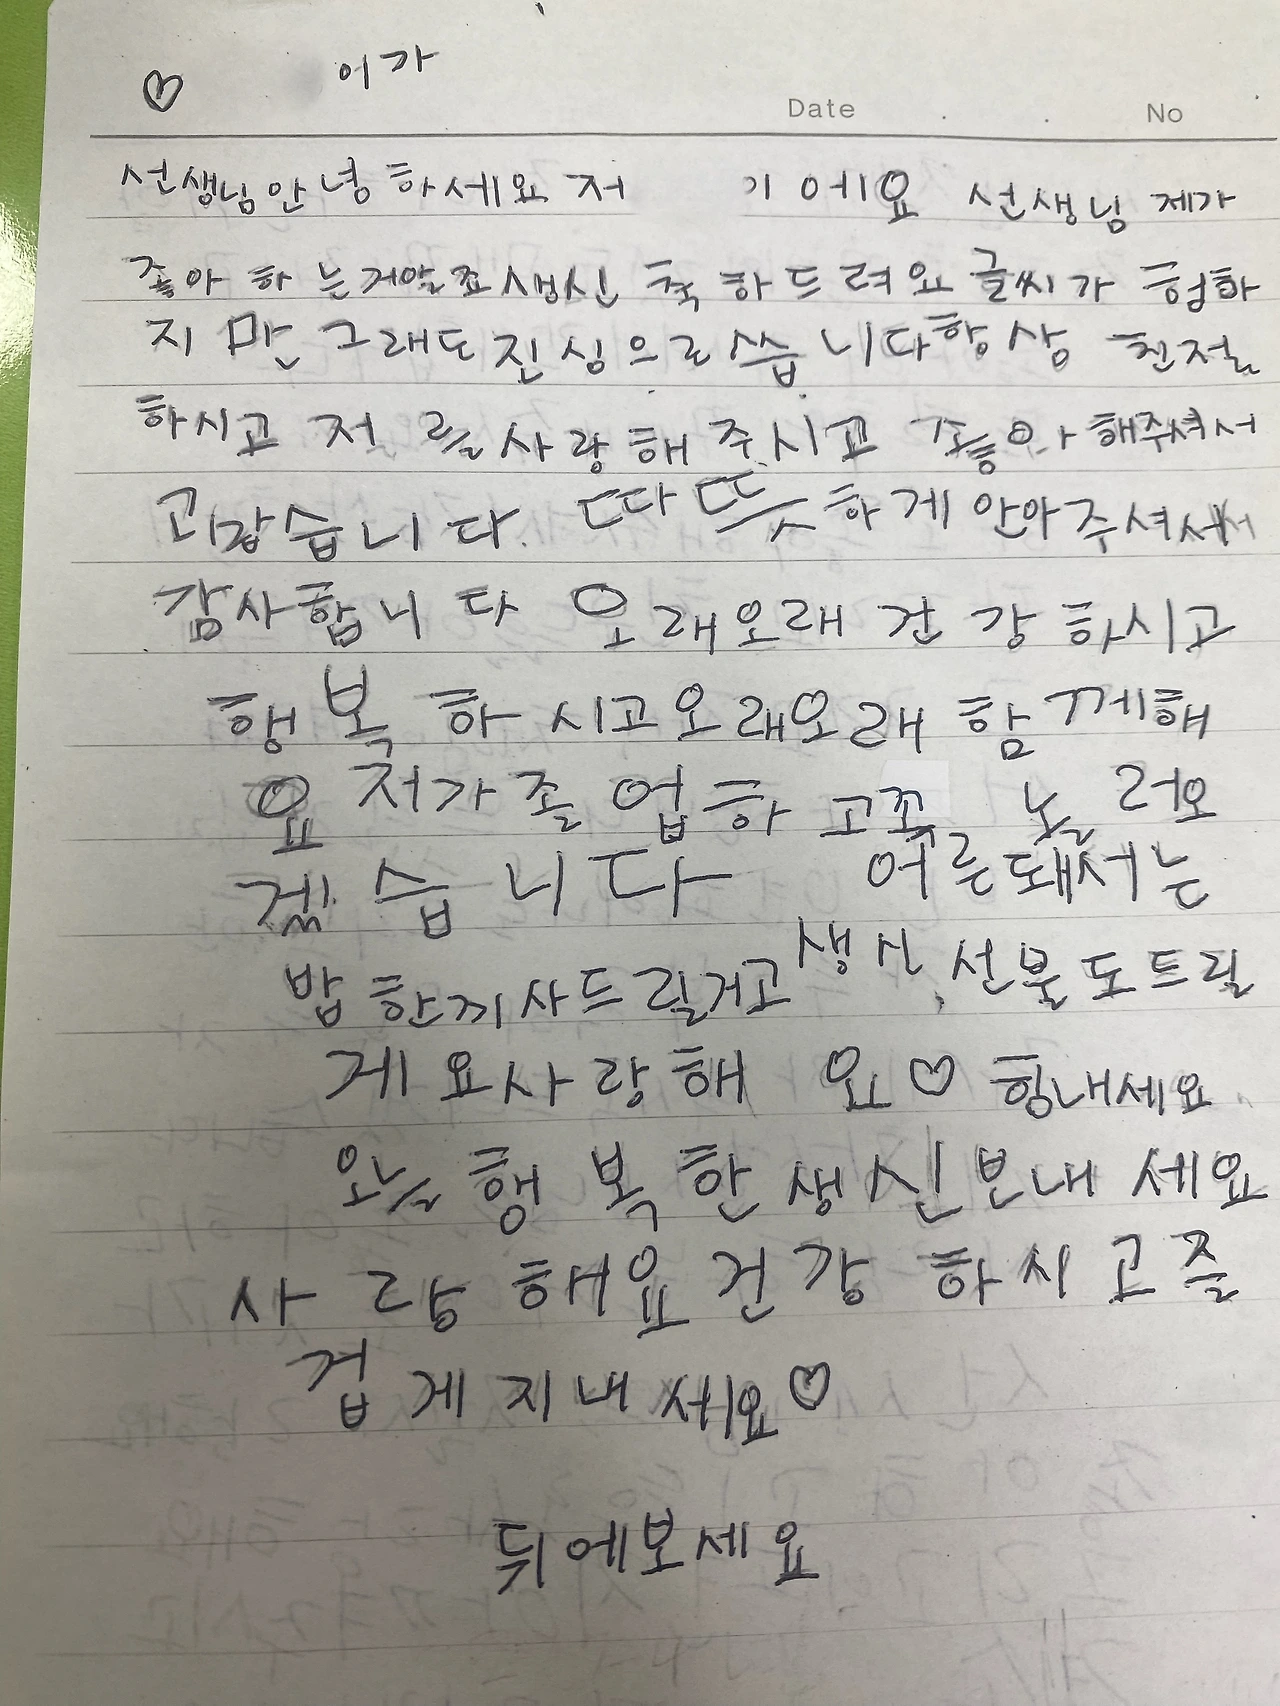 ♡ 이가
Date . . No
선생님안녕하세요 저 기에요 선생님 제가
좋아하는거알죠 생신 축하드려요 글씨가 험하
지만 그래도 진심으로 씁니다 항상 친절
하시고 저를 사랑해 주시고 좋아해주셔서
고맙습니다. 따뜻하게 안아주셔서
감사합니다 오래오래 건강하시고
행복하시고 오래오래 함께해
요 저가 졸업하고 꼭 놀러오
겠습니다 어른돼서는
밥한끼사드릴거고 생신 선물도 드릴
게요 사랑해요♡ 힘내세요
오늘 행복한 생신 보내세요
사랑해요 건강하시고 즐
겁게 지내세요♡
뒤에보세요